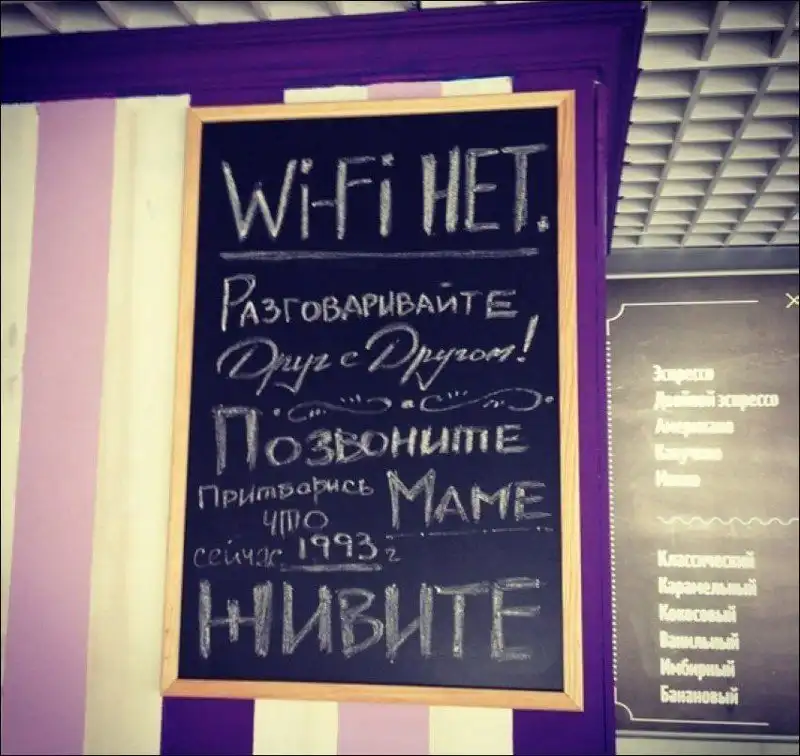 Wi-Fi НЕТ.
РАЗГОВАРИВАЙТЕ
Друг с Другом!
ПОЗВОНИТЕ
Притварись МАМЕ
что
сейчас 1993 г
ЖИВИТЕ
Эспрессо
Двойной эспрессо
Американо
Капучино
Классический
Карамельный
Кокосовый
Ванильный
Имбирный
Банановый